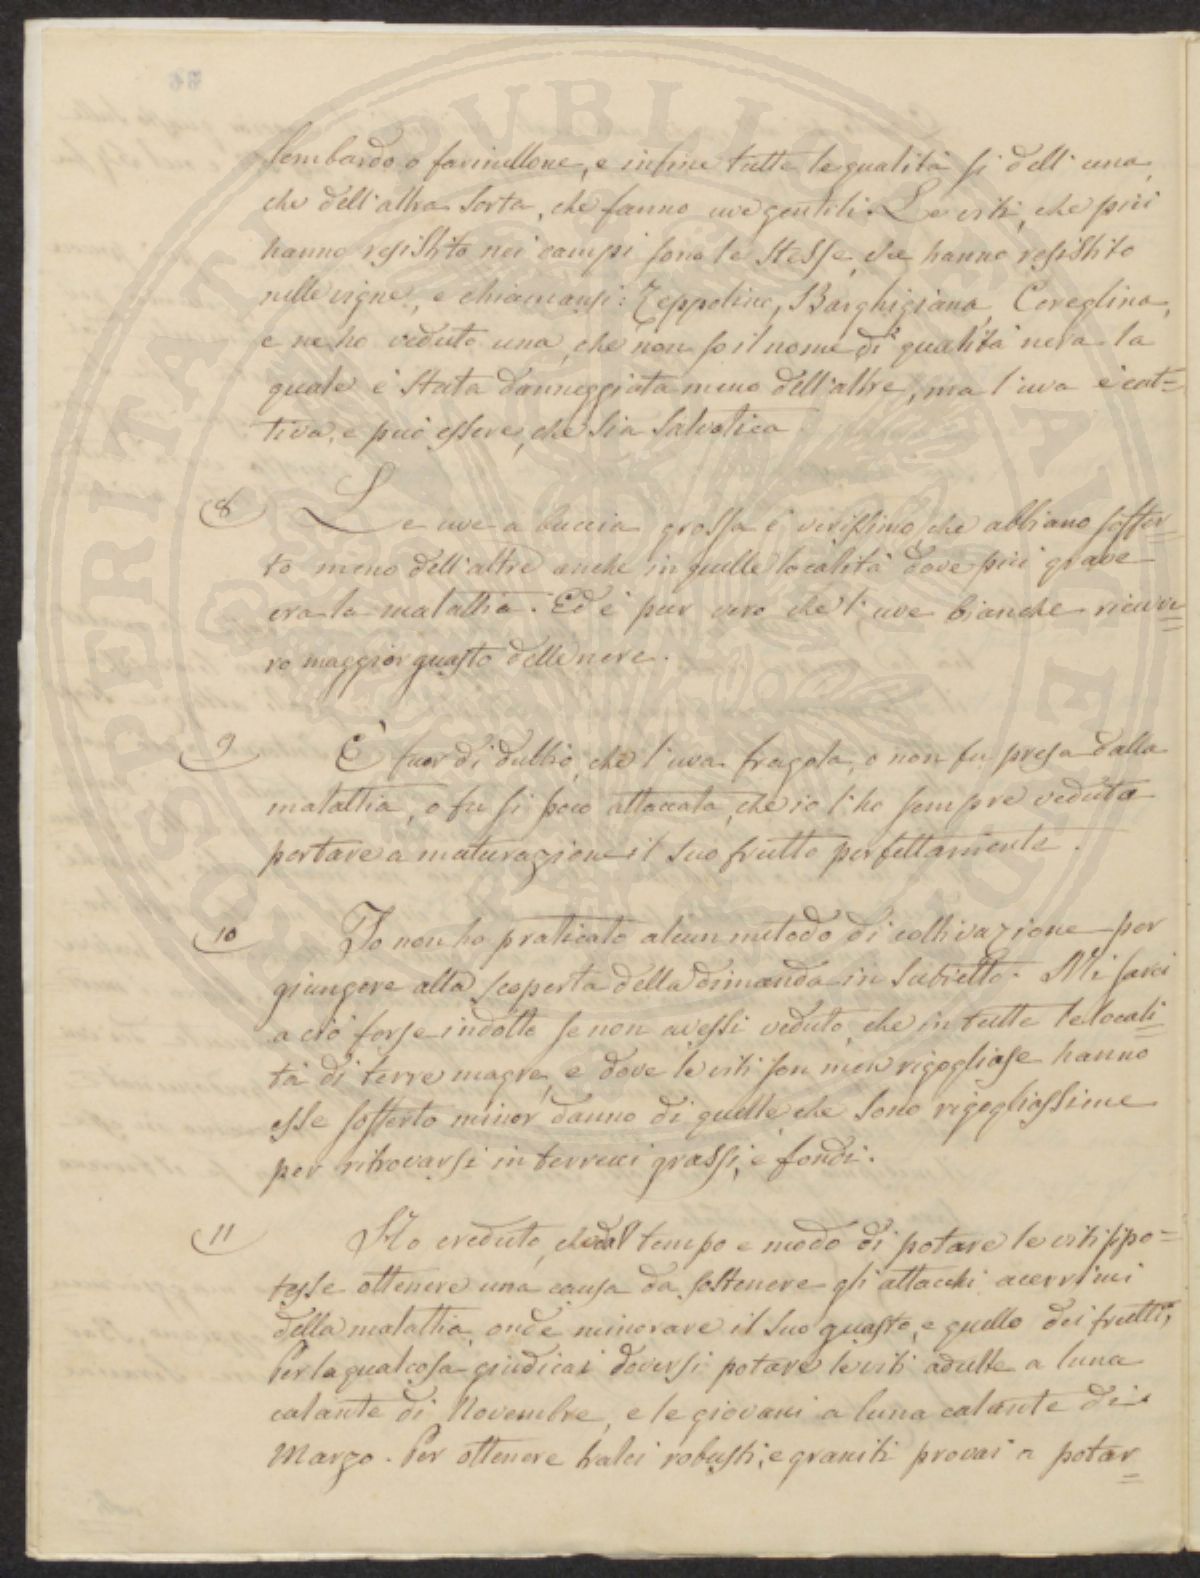 lombardo o farinellone, e infine tutte le qualità si dell'una,
che dell'altra sorta, che fanno uve gentili. Le viti, che più
hanno resistito nei campi sono le stesse, che hanno resistito
nelle vigne, e chiamansi: Zeppolino, Barghigiana, Coreglina,
e ne ho veduto una, che non so il nome di qualità nera la
quale è stata danneggiata meno dell'altre, ma l'uva è cat=
tiva, e può essere, che sia salvatica
8 Le uve a buccia grossa è verissimo, che abbiano soffer=
to meno dell'altre anche in quelle località dove più grave
era la malattia. Ed è pur vero che l'uve bianche riceve=
ro maggior guasto delle nere.
9 È fuor di dubbio, che l'uva fragola, o non fu presa dalla
malattia, o fu si poco attaccata, che io l'ho sempre veduta
portare a maturazione il suo frutto perfettamente.
10 Io non ho praticato alcun metodo di coltivazione per
giungere alla scoperta della dimanda in subietto. Mi sarei
a ciò forse indotto se non avessi veduto, che in tutte le locali=
tà di terre magre, e dove le viti son men rigogliose hanno
esse sofferto minor danno di quelle, che sono rigogliosissime
per ritrovarsi in terreni grassi, e fondi.
11 Ho creduto, che dal tempo e modo di potare le viti si po=
tesse ottenere una causa da sostenere gli attacchi acerrimi
della malattia, onde minorare il suo guasto, e quello dei frutti,
Per la qual cosa giudicai doversi potare le viti adulte a luna
calante di Novembre, e le giovani a luna calante di
Marzo. Per ottenere tralci robusti, e graniti provai a potar=
PROSPERITATI PVBLICAE AVGENDAE